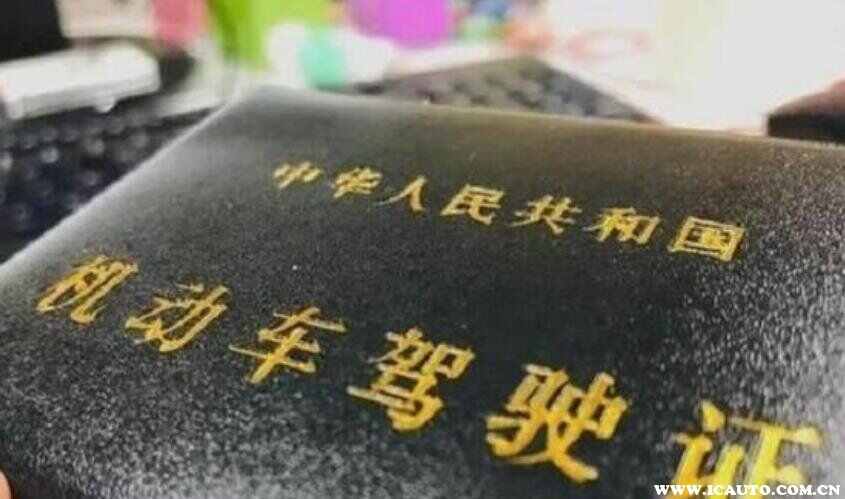 中华人民共和国
机动车驾驶证
www.icauto.com.cn